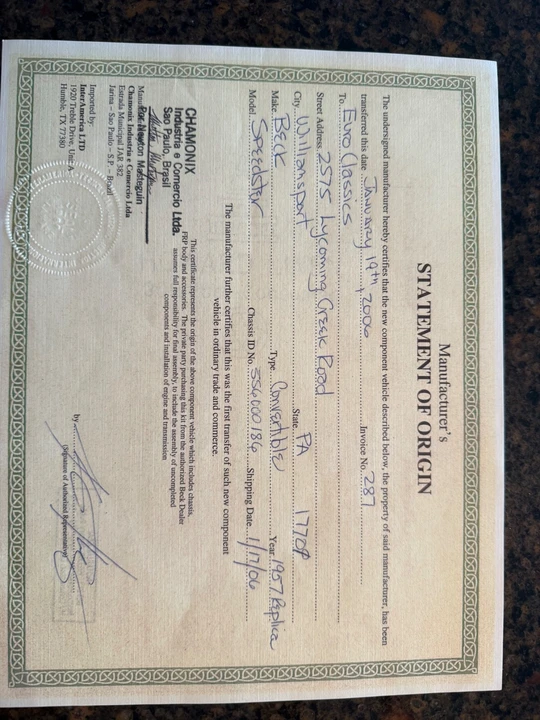 Manufacturer's
STATEMENT OF ORIGIN
The undersigned manufacturer hereby certifies that the new component vehicle described below, the property of said manufacturer, has been
transferred this date January 19th, 2006 Invoice No. 287
To: Euro Classics
Street Address 2575 Lycoming Creek Road
City Williamsport State PA
Make Beck Type Convertible Year 1957 Replica
Model Speedster Chassis ID No. Shipping Date 1/17/06
The manufacturer further certifies that this was the first transfer of such new component
vehicle in ordinary trade and commerce.
CHAMONIX
Industria e Comercio Ltda.
Sao Paulo, Brasil
Por Newton Masteguin
Chamonix Industria e Comercio Ltda
Estrada Municipal JAR 382
Jarina – Sao Paulo – S.P. – Brazil
Imported by:
InterAmerica LTD
1920 Treble Drive,
Humble, TX 77380
This certificate represents the origin of the above component vehicle which includes chassis,
FRP body and accessories. The private party purchasing this kit from the authorized Beck Dealer
assumes full responsibility for final assembly, to include the assembly of uncompleted
components and installation of engine and transmission
by
(Signature of Authorized Representative)